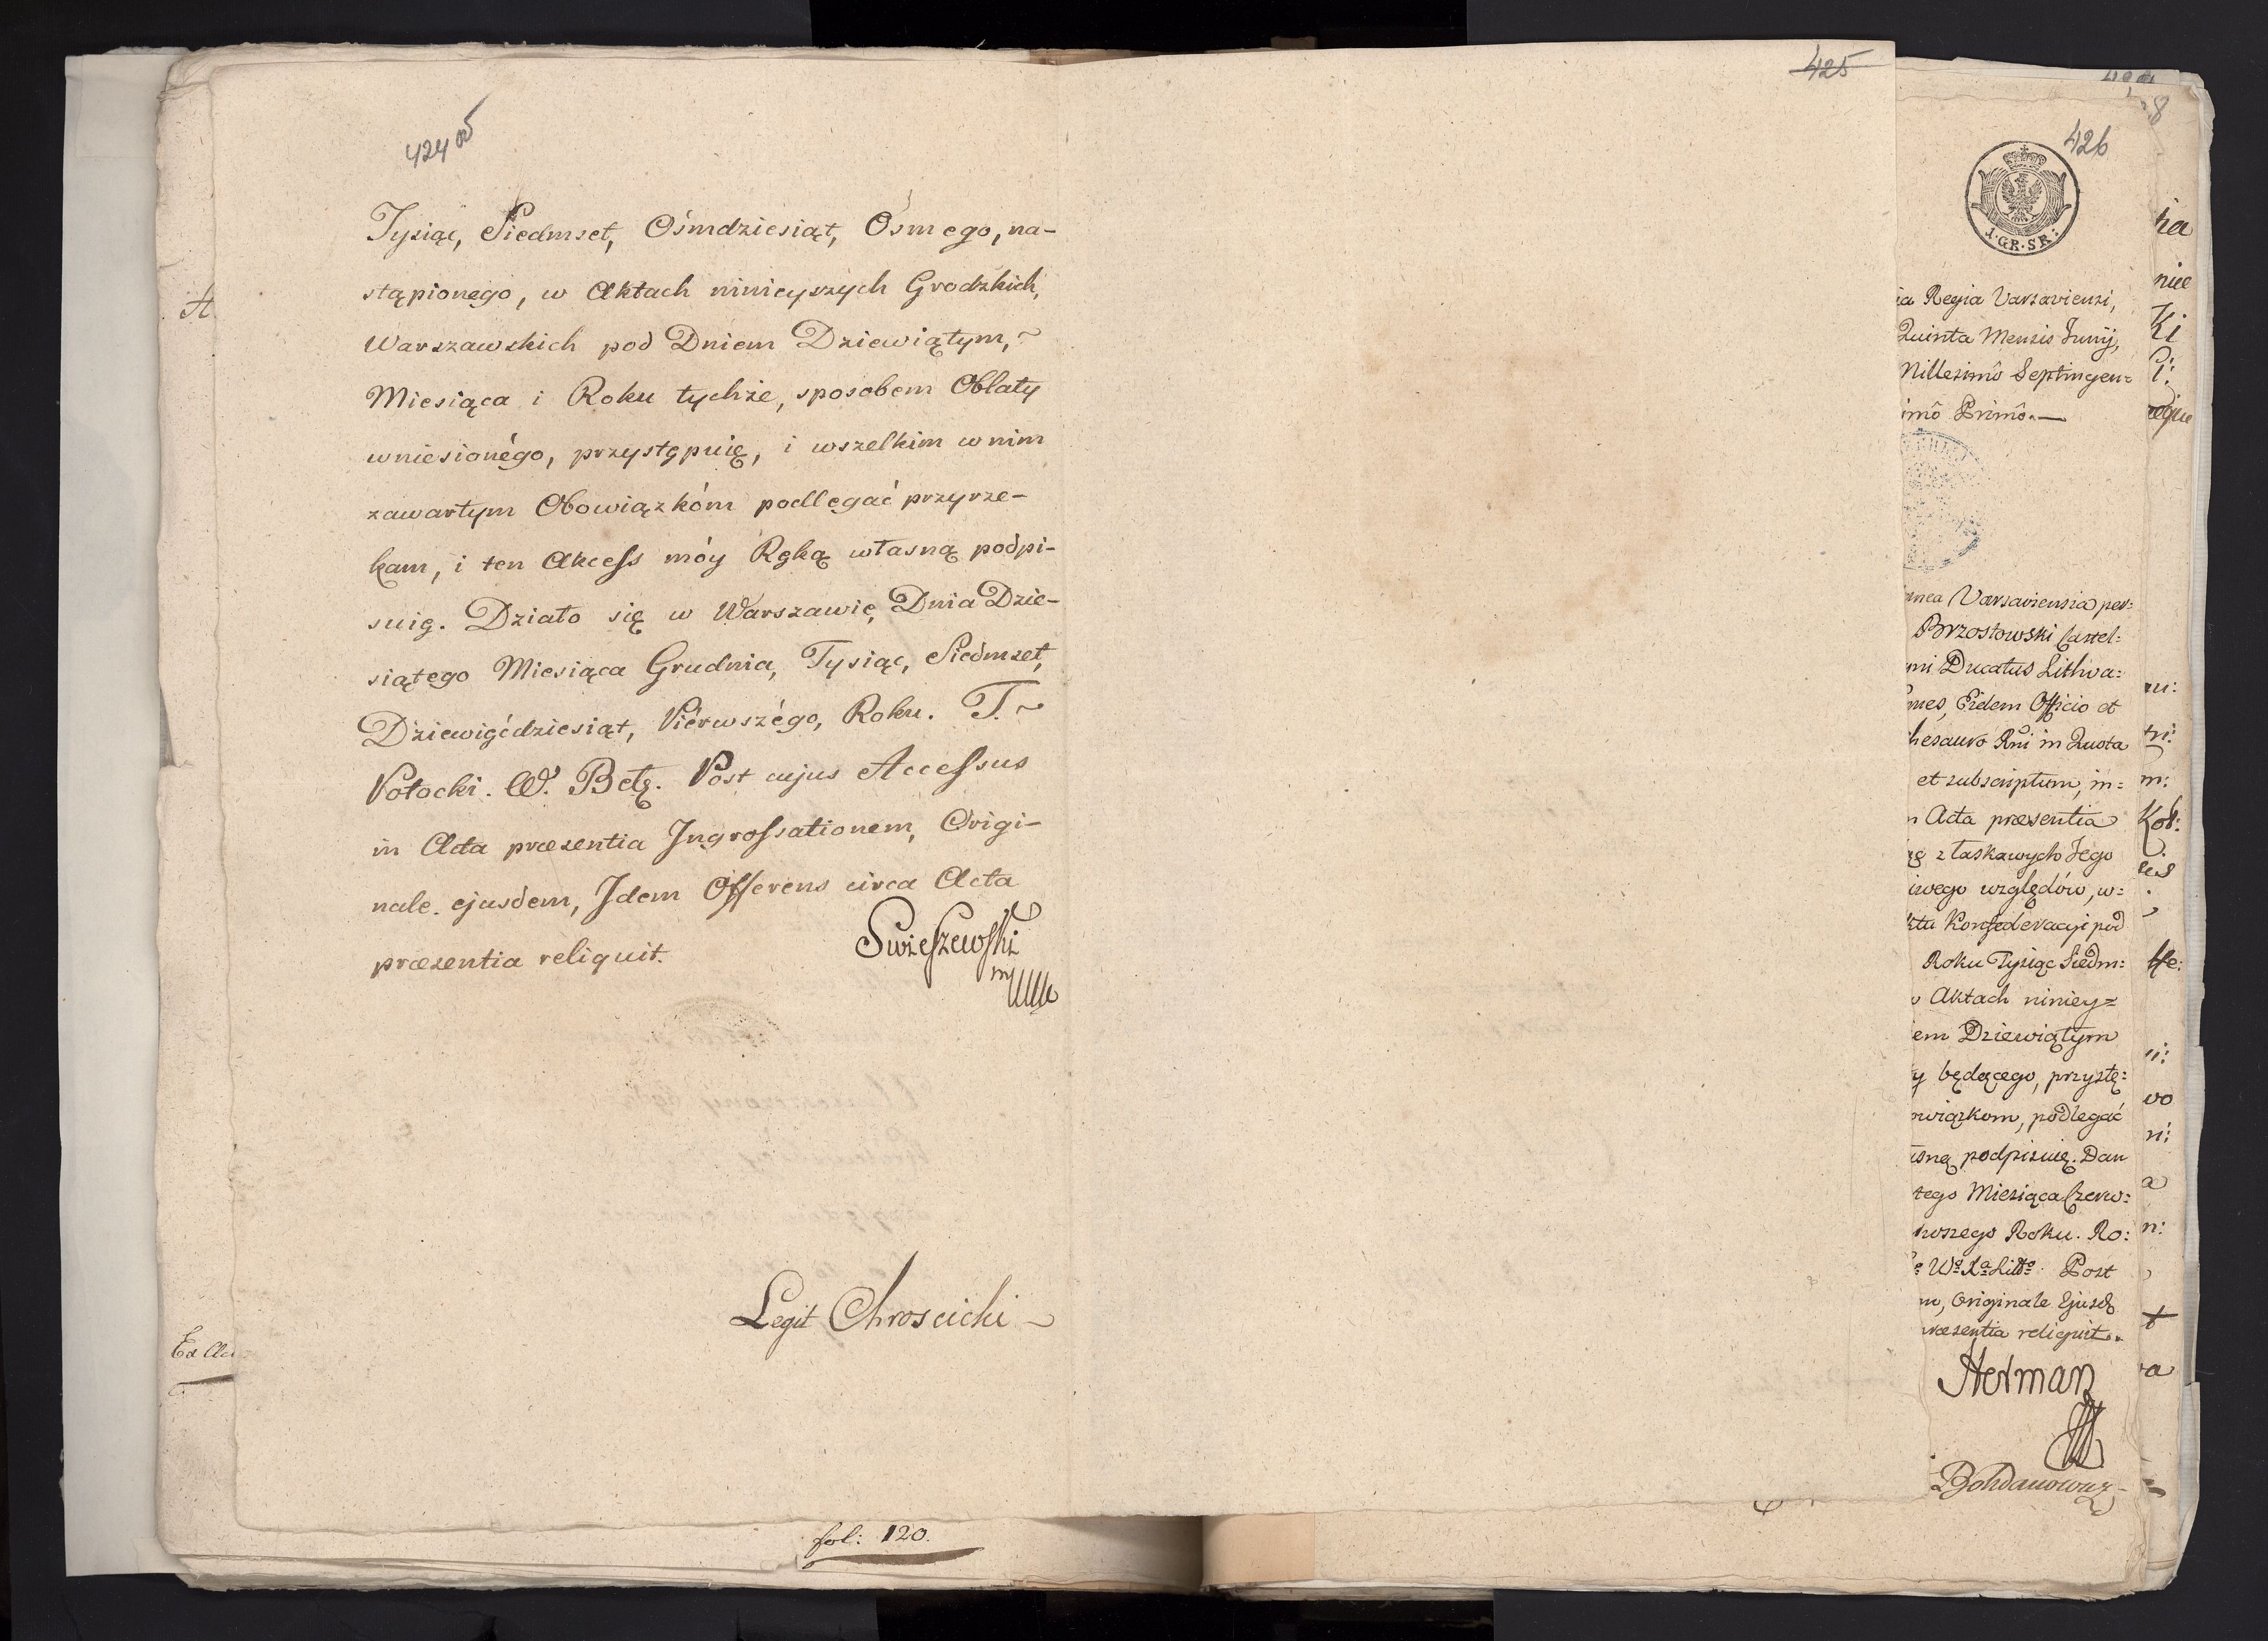 424 об
Tysiąc, Siedmset, Ośmdziesiąt, Osmego, na-
stąpionego, w Aktach ninieyszych Grodzkich,
Warszawskich pod Dniem Dziewiątym, ~
Miesiąca i Roku tychże, sposobem Oblaty
wniesionégo, przystępuię, i wszelkim w nim
zawartym Obowiązkóm podlegać przyrze-
kam, i ten Akcess móy Ręką własną podpi-
suię. Działo się w Warszawie, Dnia Dzie-
siątego Miesiąca Grudnia, Tysiąc, Siedmset,
Dziewięćdziesiąt, Piérwszégo, Roku. T. ~
Potocki. W. Bełz. Post cujus Accessus
in Acta præsentia Ingrossationem, Origi-
nale ejusdem, Idem Offerens circa Acta
præsentia reliquit.
Swieszewski
mp
Legit Chroscicki
fol: 120.
A
Ex Act
425
426
1·GR·SR:
ia Regia Varsaviensi,
Quinta Mensis Junij,
Millesimô Septingen=
imô Primô.—
Varsaviensia per=
Brzostowski Castel=
mi Ducatus Lithva=
mes, Eidem Officio et
hesauro Rni in Quota
et subscriptum, in=
n Acta præsentia
z łaskawych Jego
iwego względów, w=
ktu Konfederacyi pod
Roku Tysiąc Siedm=
w Aktach niniey=
em Dziewiątym
y będącego, przystę=
wiązkom, podlegać
asną podpisuię. Dan
tego Miesiąca Czerw=
wszego Roku. Ro:
Post
m, Originale Ejusd
ræsentia reliquit.
Herman
Bohdanowicz
8
nie
Ki
m:
vo
n:
a